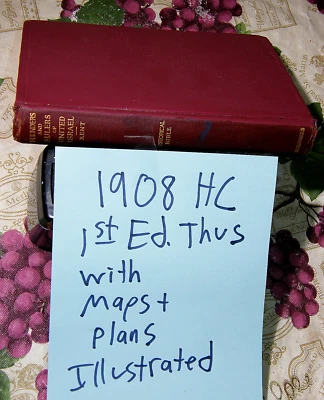 FOUNDERS
AND
RULERS
OF
UNITED
ISRAEL
KENT
HISTORICAL
BIBLE
1908 HC
1st Ed. Thus
with
Maps +
plans
Illustrated